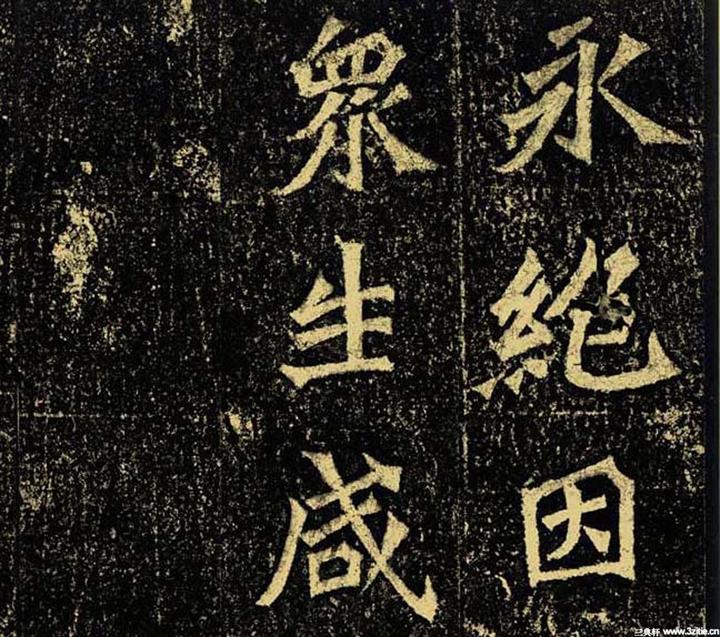 永絶因
眾生咸
三集軒 www.3zitie.cn